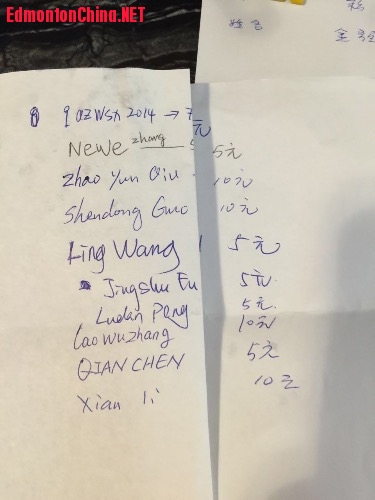 EdmontonChina.NET
姓名
金额
qazwsx2014 → 7元
Newe zhang 5 5元
Zhao Yun Qiu 10元
Shendong Guo 10元
Ling Wang 5元
Jingshu Fu 5元
Ludan Peng 5元
Laowuzhang 10元
QIAN CHEN 5元
Xian li 10元